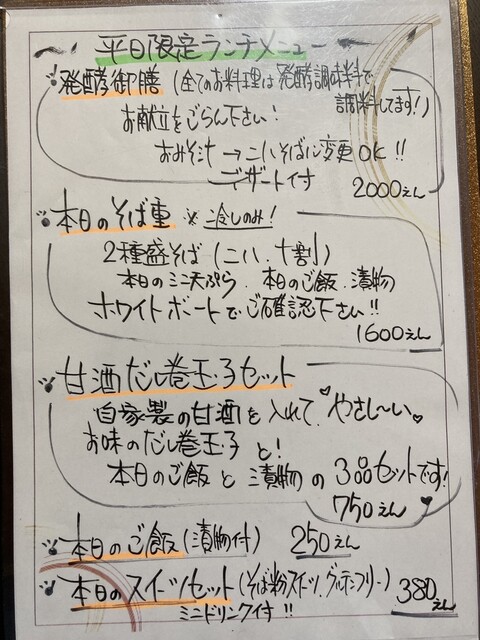 平日限定ランチメニュー
発酵御膳 (全てのお料理は発酵調味料で
調料してます!)
お献立をごらん下さい!
おみそ汁→二八そばに変更OK!!
デザート付 2000えん
本日のそば重 ※冷しのみ!
2種盛そば(二八、十割)
本日のミニ天ぷら、本日のご飯、漬物
ホワイトボードでご確認下さい!!
1600えん
甘酒だし巻玉子セット
自家製の甘酒を入れて、やさし〜い♥
お味のだし巻玉子と!
本日のご飯と漬物の3品セットです!
750えん♥
本日のご飯(漬物付) 250えん
本日のスイーツセット(そば粉スイーツ、グルテンフリー) 380えん
ミニドリンク付!!